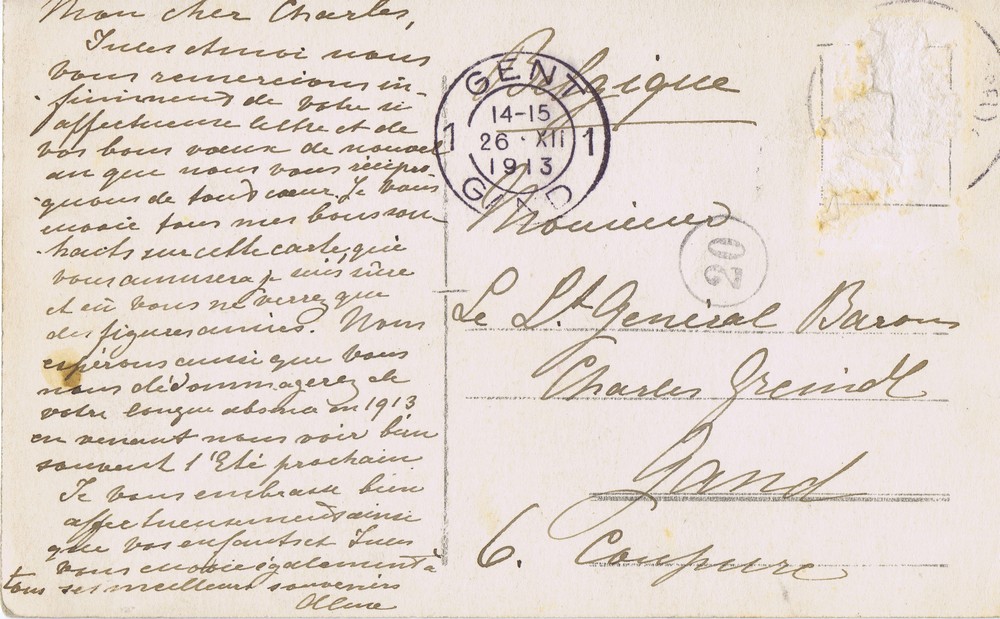 Mon cher Charles,
Jules et moi nous
vous remercions in-
finiment de votre si
affectueuse lettre et de
vos bons vœux de nouvel
an que nous vous récipro-
quons de tout cœur, je vous
envoie tous mes bons sou-
haits sur cette carte, qui
vous amusera je suis sûre
et où vous ne verrez que
des figures amies. Nous
espérons aussi que vous
nous dédommagerez de
votre longue absence en 1913
en venant nous voir bien
souvent l'Eté prochain
Je vous embrasse bien
affectueusement ainsi
que vos enfants et Jules
vous envoie également à
tous ses meilleurs souvenirs
Belgique
GENT
14-15
1 26 · XII 1
1913
GAND
Monsieur
20
Le Lt Général Baron
Charles Greindl
Gand
6. Coupure